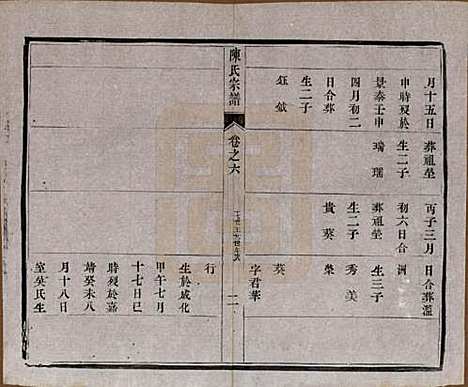 月十五日
申時殁於
景泰壬申
四月初二
日合葬
生二子
鈺鉞
葬祖塋
生二子
瑞瓛
丙子三月
初六日合
葬祖塋
生二子
貴葵
日合葬瀶
洲
生三子
秀美
榮
葵
字君華
陳氏宗譜
卷之六
二
行
生於成化
甲午七月
十七日巳
時殁於嘉
靖癸未八
月十八日
室吳氏生